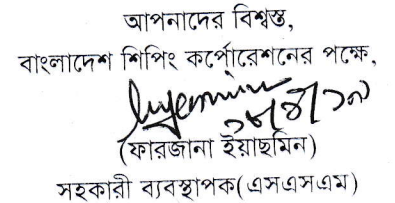 আপনাদের বিশ্বস্ত,
বাংলাদেশ শিপিং কর্পোরেশনের পক্ষে,
(ফারজানা ইয়াছমিন)
সহকারী ব্যবস্থাপক(এসএসএম)